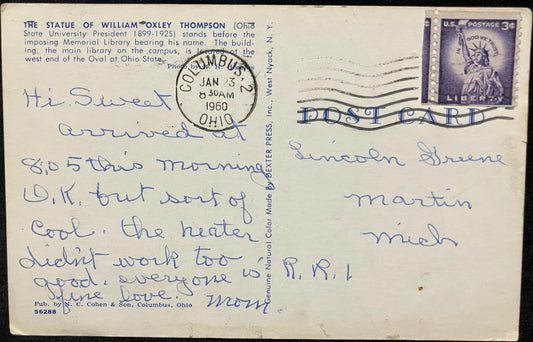 THE STATUE OF WILLIAM OXLEY THOMPSON (Ohio
State University President 1899-1925) stands before the
imposing Memorial Library bearing his name. The build-
ing, the main library on the campus, is located at the
west end of the Oval at Ohio State.
Photo by
COLUMBUS 2
JAN 23
830AM
1960
OHIO
U.S. POSTAGE 3¢
IN GOD WE TRUST
LIBERTY
POST CARD
Hi Sweet
arrived at
8,05 this morning
O.K. but sort of
cool. the heater
didn't work too
good. everyone is
fine love. Mom.
Pub. by N. C. Cohen & Son, Columbus, Ohio
56288
Genuine Natural Color Made By DEXTER PRESS, Inc., West Nyack, N. Y.
Lincoln Greene
Martin
Mich
R.R.1